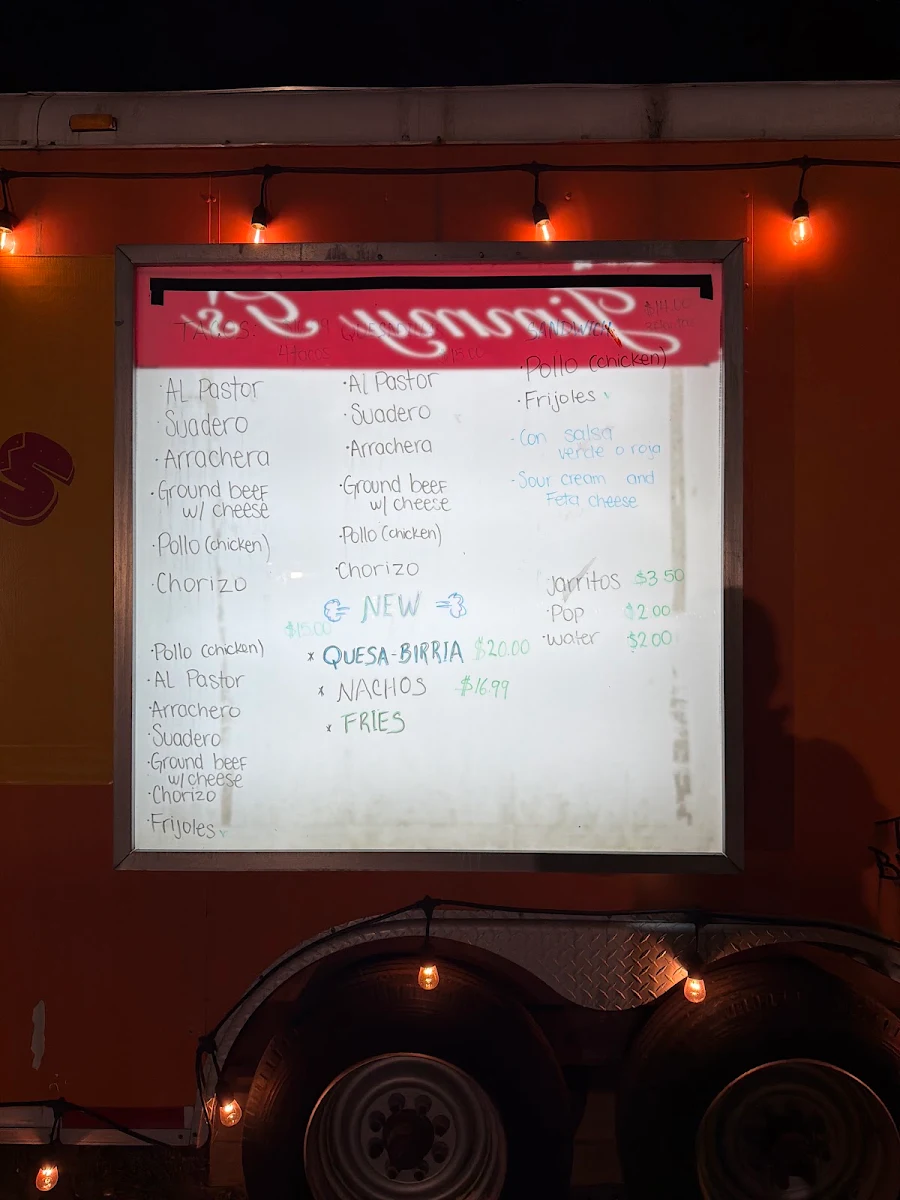 Jimmy G's
TACOS:
4 tacos
· AL Pastor
· Suadero
· Arrachera
· Ground beef
w/ cheese
· Pollo (chicken)
· Chorizo
$15.00
· Pollo (chicken)
· AL Pastor
· Arrachero
· Suadero
· Ground beef
w/ cheese
· Chorizo
· Frijoles
· Al Pastor
· Suadero
· Arrachera
· Ground beef
w/ cheese
· Pollo (chicken)
· Chorizo
NEW
x QUESA-BIRRIA $20.00
x NACHOS $16.99
x FRIES
$14.00
· Pollo (chicken)
· Frijoles
- Con salsa
verde o roja
- Sour cream and
Feta cheese
Jarritos $3.50
· Pop $2.00
· water $2.00
S